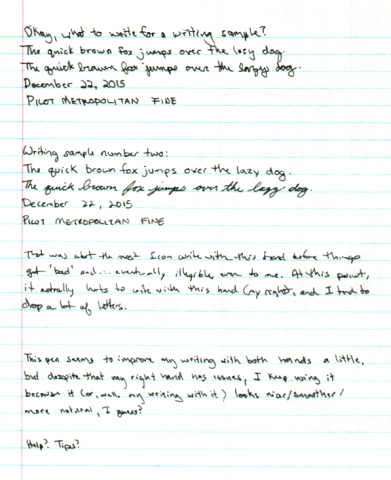 Okay, what to write for a writing sample?
The quick brown fox jumps over the lazy dog.
The quick brown fox jumps over the lazy dog.
December 22, 2015
PILOT METROPOLITAN FINE
Writing sample number two:
The quick brown fox jumps over the lazy dog.
The quick brown fox jumps over the lazy dog.
December 22, 2015
PILOT METROPOLITAN FINE
That was abt the most I can write with this hand before things
get 'bad' and... eventually illegible, even to me. At this point,
it actually hurts to write with this hand (my right), and I tend to
drop a lot of letters.
This pen seems to improve my writing with both hands a little,
but despite that my right hand has issues, I keep using it
because it (or, well, my writing with it) looks nicer/smoother/
more natural, I guess?
Help? Tips?